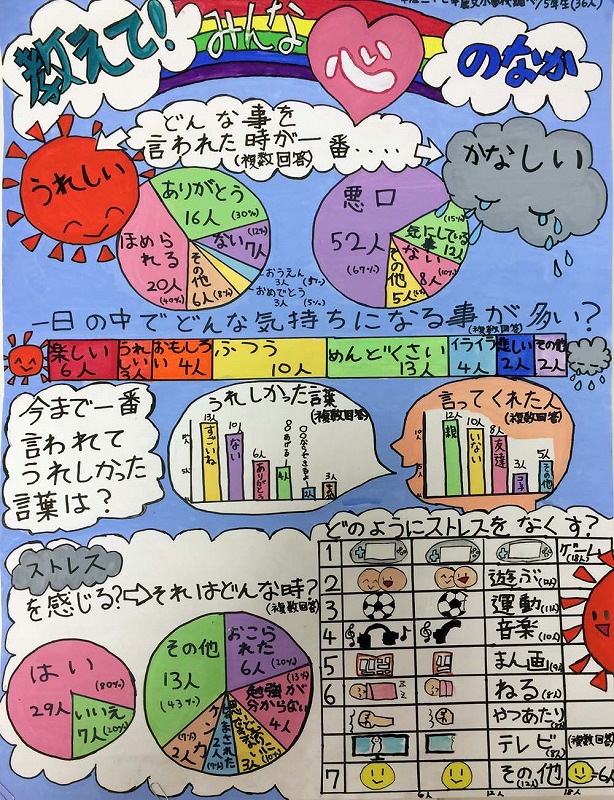 べ/5年生(36人)
教えて!
みんな
心
のなか
どんな事を
言われた時が一番.....
(複数回答)
うれしい
かなしい
ありがとう
16人
(30%)
ない
7人
(12%)
ほめら
れる
20人
(40%)
その他
6人
(8%)
おうえん
3人
(5%)
おめでとう
3人
(5%)
悪口
52人
(67%)
(15%)
気にしている
事 12人
ない
8人
(10%)
その他
5人
一日の中でどんな気持ちになる事が多い?
(複数回答)
楽しい
6人
うれしい
3人
おもしろい
4人
ふつう
10人
めんどくさい
13人
イライラ
4人
悲しい
2人
その他
2人
今まで一番
言われて
うれしかった
言葉は?
うれしかった言葉
(複数回答)
13人
すごいね
10人
ない
6人
ありがとう
4人
2人
3人
言ってくれた人
(複数回答)
12人
親
10人
いない
8人
友達
3人
5人
その他
ストレス
を感じる?⇨それはどんな時?
(複数回答)
はい
(80%)
29人
いいえ
7人
(20%)
その他
13人
(43%)
おこら
れた
6人
(20%)
(13%)
勉強が
分からない
4人
3人
(10%)
2人
(7%)
ケンカ
2人
(7%)
どのようにストレスをなくす?
1
ゲーム
(18人)
2
遊ぶ(12人)
3
運動(11人)
4
音楽
(10人)
5
まん画(9人)
6
ねる(8人)
やつあたり
テレビ
(8人)
7
その他
(12人)
(複数回答)
=6人
6人
12人
18人